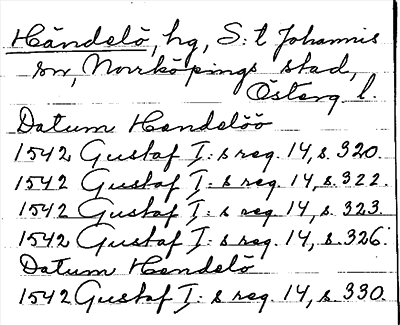 Händelö, hg, S:t Johannis
sn, Norrköpings stad,
Österg. l.
Datum Hendelöö
1542 Gustaf I:s reg. 14, s. 320.
1542 Gustaf I:s reg. 14, s. 322.
1542 Gustaf I:s reg. 14, s. 323.
1542 Gustaf I:s reg. 14, s. 326.
Datum Hendelö
1542 Gustaf I:s reg. 14, s. 330.